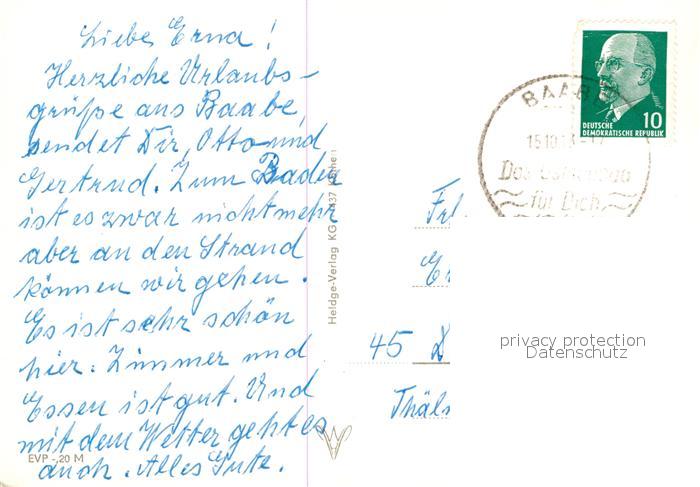 Liebe Erna!
Herzliche Urlaubs-
grüße aus Baabe,
sendet Dir, Otto und
Gertrud. Zum Baden
ist es zwar nicht mehr
aber an den Strand
können wir gehen.
Es ist sehr schön
hier. Zimmer und
Essen ist gut. Und
mit dem Wetter geht es
auch. Alles Gute.
EVP -,20 M
Heldge-Verlag KG
BAABE
15.10.
für Dich
10
DEUTSCHE
DEMOKRATISCHE REPUBLIK
45 D
Thäls
privacy protection
Datenschutz